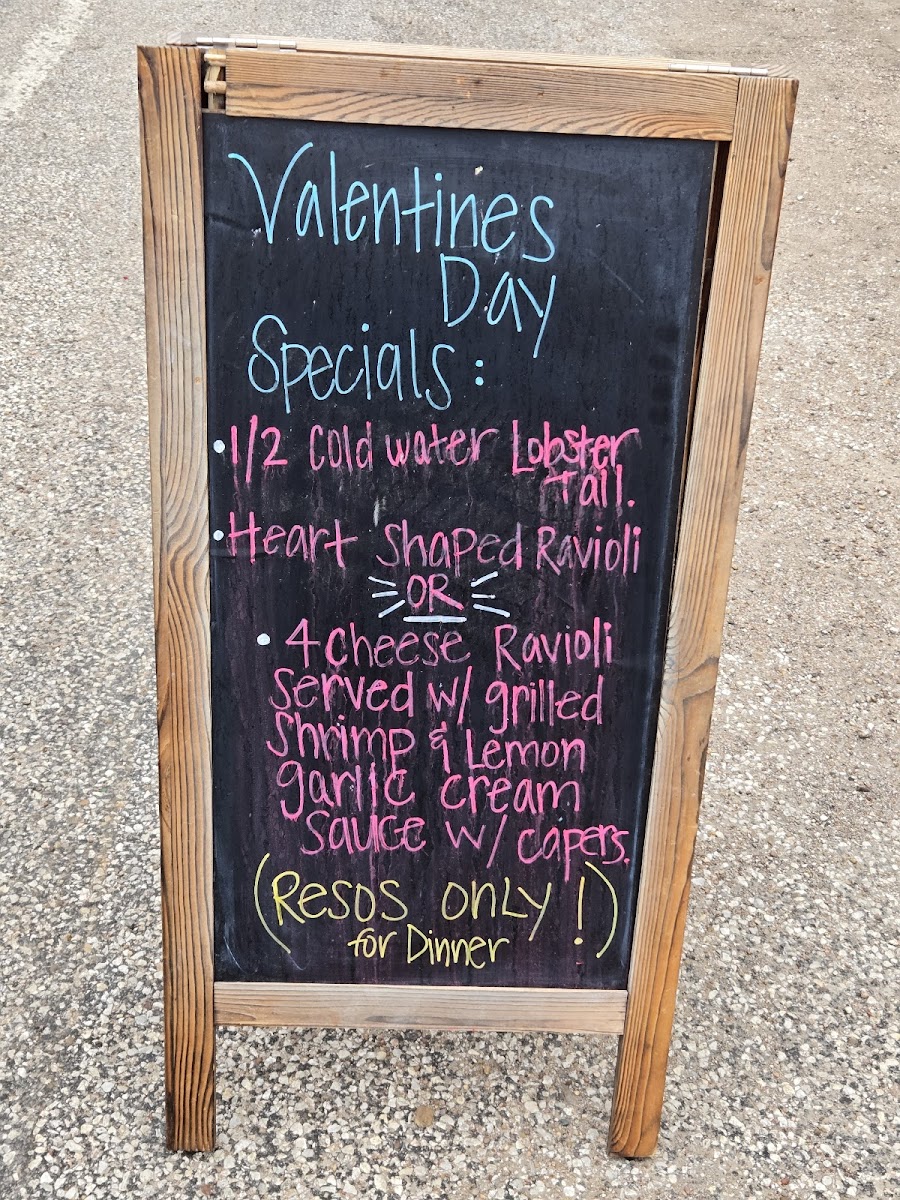 Valentines
Day
Specials:
• 1/2 cold water Lobster
Tail.
• Heart Shaped Ravioli
OR
• 4 cheese Ravioli
served w/ grilled
Shrimp & Lemon
garlic cream
sauce w/ capers.
(Resos ONLY!)
for Dinner